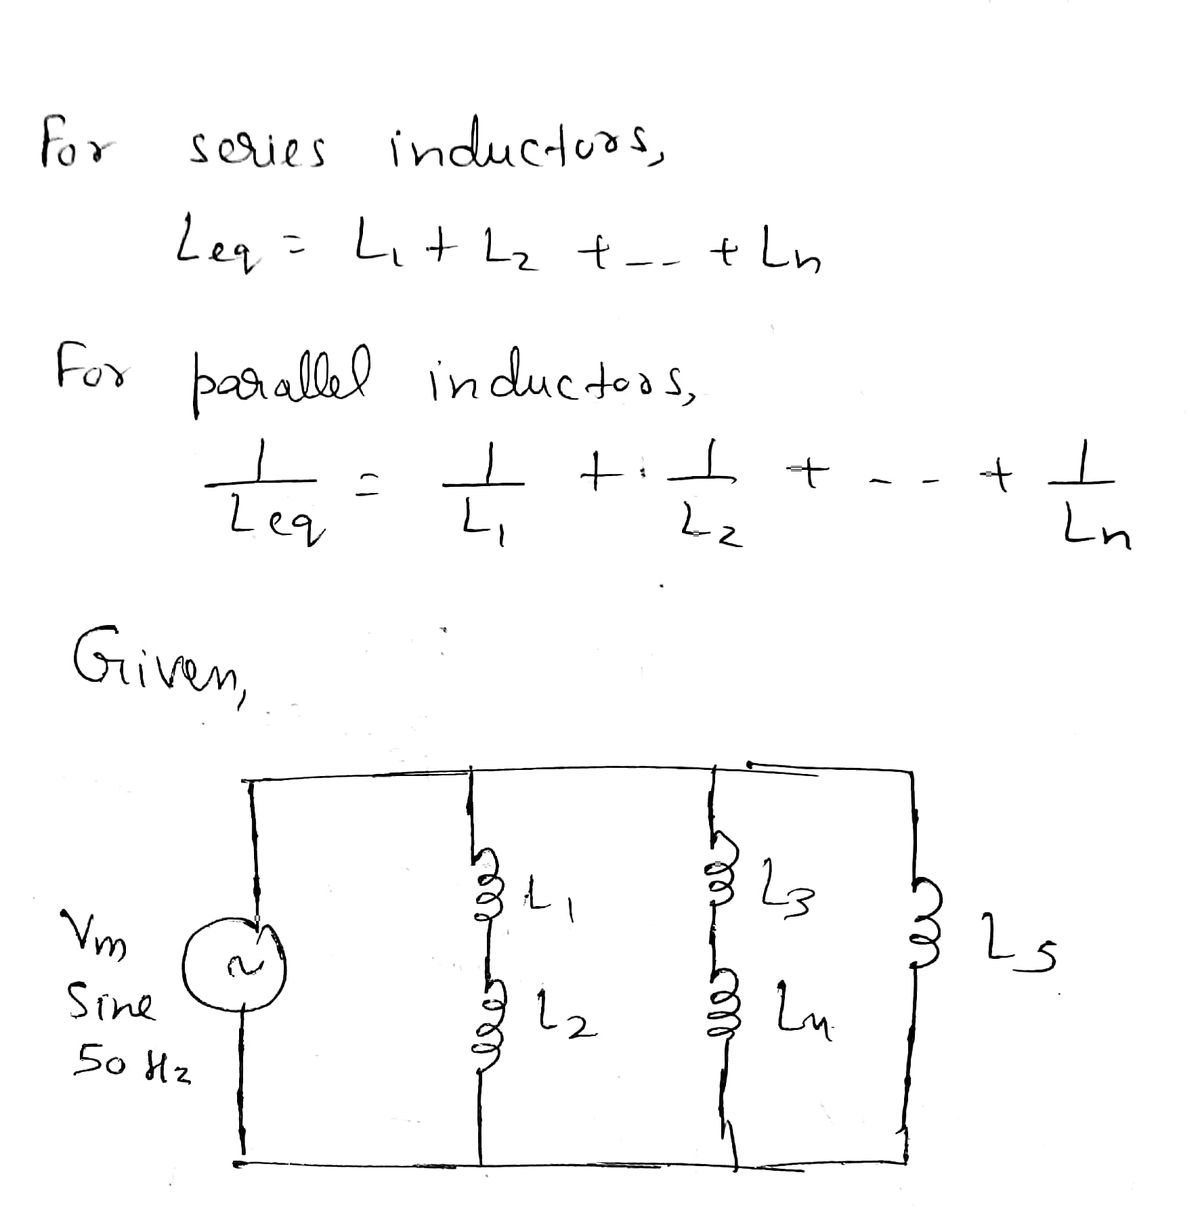 For series inductors,
Leq = L1 + L2 + -- + Ln
For parallel inductors,
1/Leq = 1/L1 + 1/L2 + -- + 1/Ln
Given,
Vm
Sine
50 Hz
~
L1
L2
L3
L4
L5